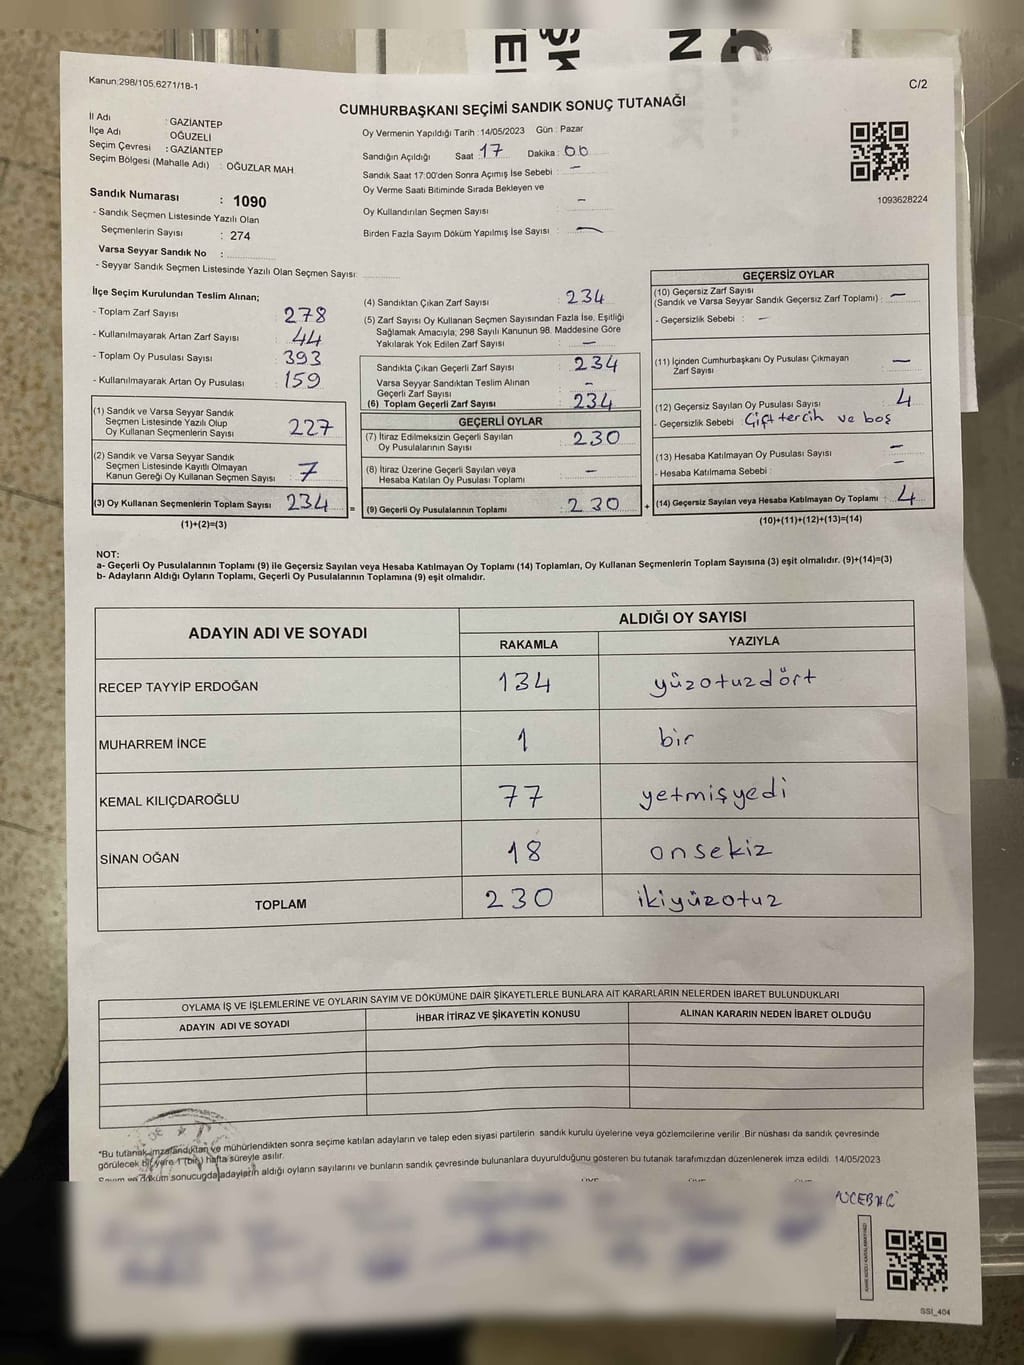 Kanun:298/105.6271/18-1
C/2
CUMHURBAŞKANI SEÇİMİ SANDIK SONUÇ TUTANAĞI
İl Adı : GAZİANTEP
İlçe Adı : OĞUZELİ
Seçim Çevresi : GAZİANTEP
Seçim Bölgesi (Mahalle Adı) : OĞUZLAR MAH
Oy Vermenin Yapıldığı Tarih : 14/05/2023 Gün : Pazar
Sandığın Açıldığı Saat : 17 Dakika : 00
Sandık Saat 17:00'den Sonra Açımış İse Sebebi : –
Oy Verme Saati Bitiminde Sırada Bekleyen ve
Oy Kullandırılan Seçmen Sayısı –
Birden Fazla Sayım Döküm Yapılmış İse Sayısı : –
1093628224
Sandık Numarası : 1090
- Sandık Seçmen Listesinde Yazılı Olan
Seçmenlerin Sayısı : 274
Varsa Seyyar Sandık No :
- Seyyar Sandık Seçmen Listesinde Yazılı Olan Seçmen Sayısı:
İlçe Seçim Kurulundan Teslim Alınan;
- Toplam Zarf Sayısı : 278
- Kullanılmayarak Artan Zarf Sayısı : 44
- Toplam Oy Pusulası Sayısı : 393
- Kullanılmayarak Artan Oy Pusulası : 159
(1) Sandık ve Varsa Seyyar Sandık
Seçmen Listesinde Yazılı Olup
Oy Kullanan Seçmenlerin Sayısı 227
(2) Sandık ve Varsa Seyyar Sandık
Seçmen Listesinde Kayıtlı Olmayan
Kanun Gereği Oy Kullanan Seçmen Sayısı 7
(3) Oy Kullanan Seçmenlerin Toplam Sayısı 234 =
(1)+(2)=(3)
(4) Sandıktan Çıkan Zarf Sayısı : 234
(5) Zarf Sayısı Oy Kullanan Seçmen Sayısından Fazla İse, Eşitliği
Sağlamak Amacıyla; 298 Sayılı Kanunun 98. Maddesine Göre
Yakılarak Yok Edilen Zarf Sayısı : –
Sandıkta Çıkan Geçerli Zarf Sayısı : 234
Varsa Seyyar Sandıktan Teslim Alınan
Geçerli Zarf Sayısı : –
(6) Toplam Geçerli Zarf Sayısı : 234
GEÇERLİ OYLAR
(7) İtiraz Edilmeksizin Geçerli Sayılan
Oy Pusulalarının Sayısı : 230
(8) İtiraz Üzerine Geçerli Sayılan veya
Hesaba Katılan Oy Pusulaları Toplamı : –
(9) Geçerli Oy Pusulalarının Toplamı : 230 +
GEÇERSİZ OYLAR
(10) Geçersiz Zarf Sayısı
(Sandık ve Varsa Seyyar Sandık Geçersiz Zarf Toplamı) : –
- Geçersizlik Sebebi : –
(11) İçinden Cumhurbaşkanı Oy Pusulası Çıkmayan
Zarf Sayısı : –
(12) Geçersiz Sayılan Oy Pusulası Sayısı : 4
- Geçersizlik Sebebi : Çift tercih ve boş
(13) Hesaba Katılmayan Oy Pusulası Sayısı : –
- Hesaba Katılmama Sebebi : –
(14) Geçersiz Sayılan veya Hesaba Katılmayan Oy Toplamı : 4
(10)+(11)+(12)+(13)=(14)
NOT:
a- Geçerli Oy Pusulalarının Toplamı (9) ile Geçersiz Sayılan veya Hesaba Katılmayan Oy Toplamı (14) Toplamları, Oy Kullanan Seçmenlerin Toplam Sayısına (3) eşit olmalıdır. (9)+(14)=(3)
b- Adayların Aldığı Oyların Toplamı, Geçerli Oy Pusulalarının Toplamına (9) eşit olmalıdır.
ADAYIN ADI VE SOYADI
ALDIĞI OY SAYISI
RAKAMLA YAZIYLA
RECEP TAYYİP ERDOĞAN 134 yüzotuzdört
MUHARREM İNCE 1 bir
KEMAL KILIÇDAROĞLU 77 yetmişyedi
SİNAN OĞAN 18 onsekiz
TOPLAM 230 ikiyüzotuz
OYLAMA İŞ VE İŞLEMLERİNE VE OYLARIN SAYIM VE DÖKÜMÜNE DAİR ŞİKAYETLERLE BUNLARA AİT KARARLARIN NELERDEN İBARET BULUNDUKLARI
ADAYIN ADI VE SOYADI İHBAR İTİRAZ VE ŞİKAYETİN KONUSU ALINAN KARARIN NEDEN İBARET OLDUĞU
*Bu tutanak imzalandıktan ve mühürlendikten sonra seçime katılan adayların ve talep eden siyasi partilerin sandık kurulu üyelerine veya gözlemcilerine verilir. Bir nüshası da sandık çevresinde
görülecek bir yere 1 (bir) hafta süreyle asılır.
Sayım ve döküm sonucunda adayların aldığı oyların sayılarını ve bunların sandık çevresinde bulunanlara duyurulduğunu gösteren bu tutanak tarafımızdan düzenlenerek imza edildi. 14/05/2023
SSİ_404